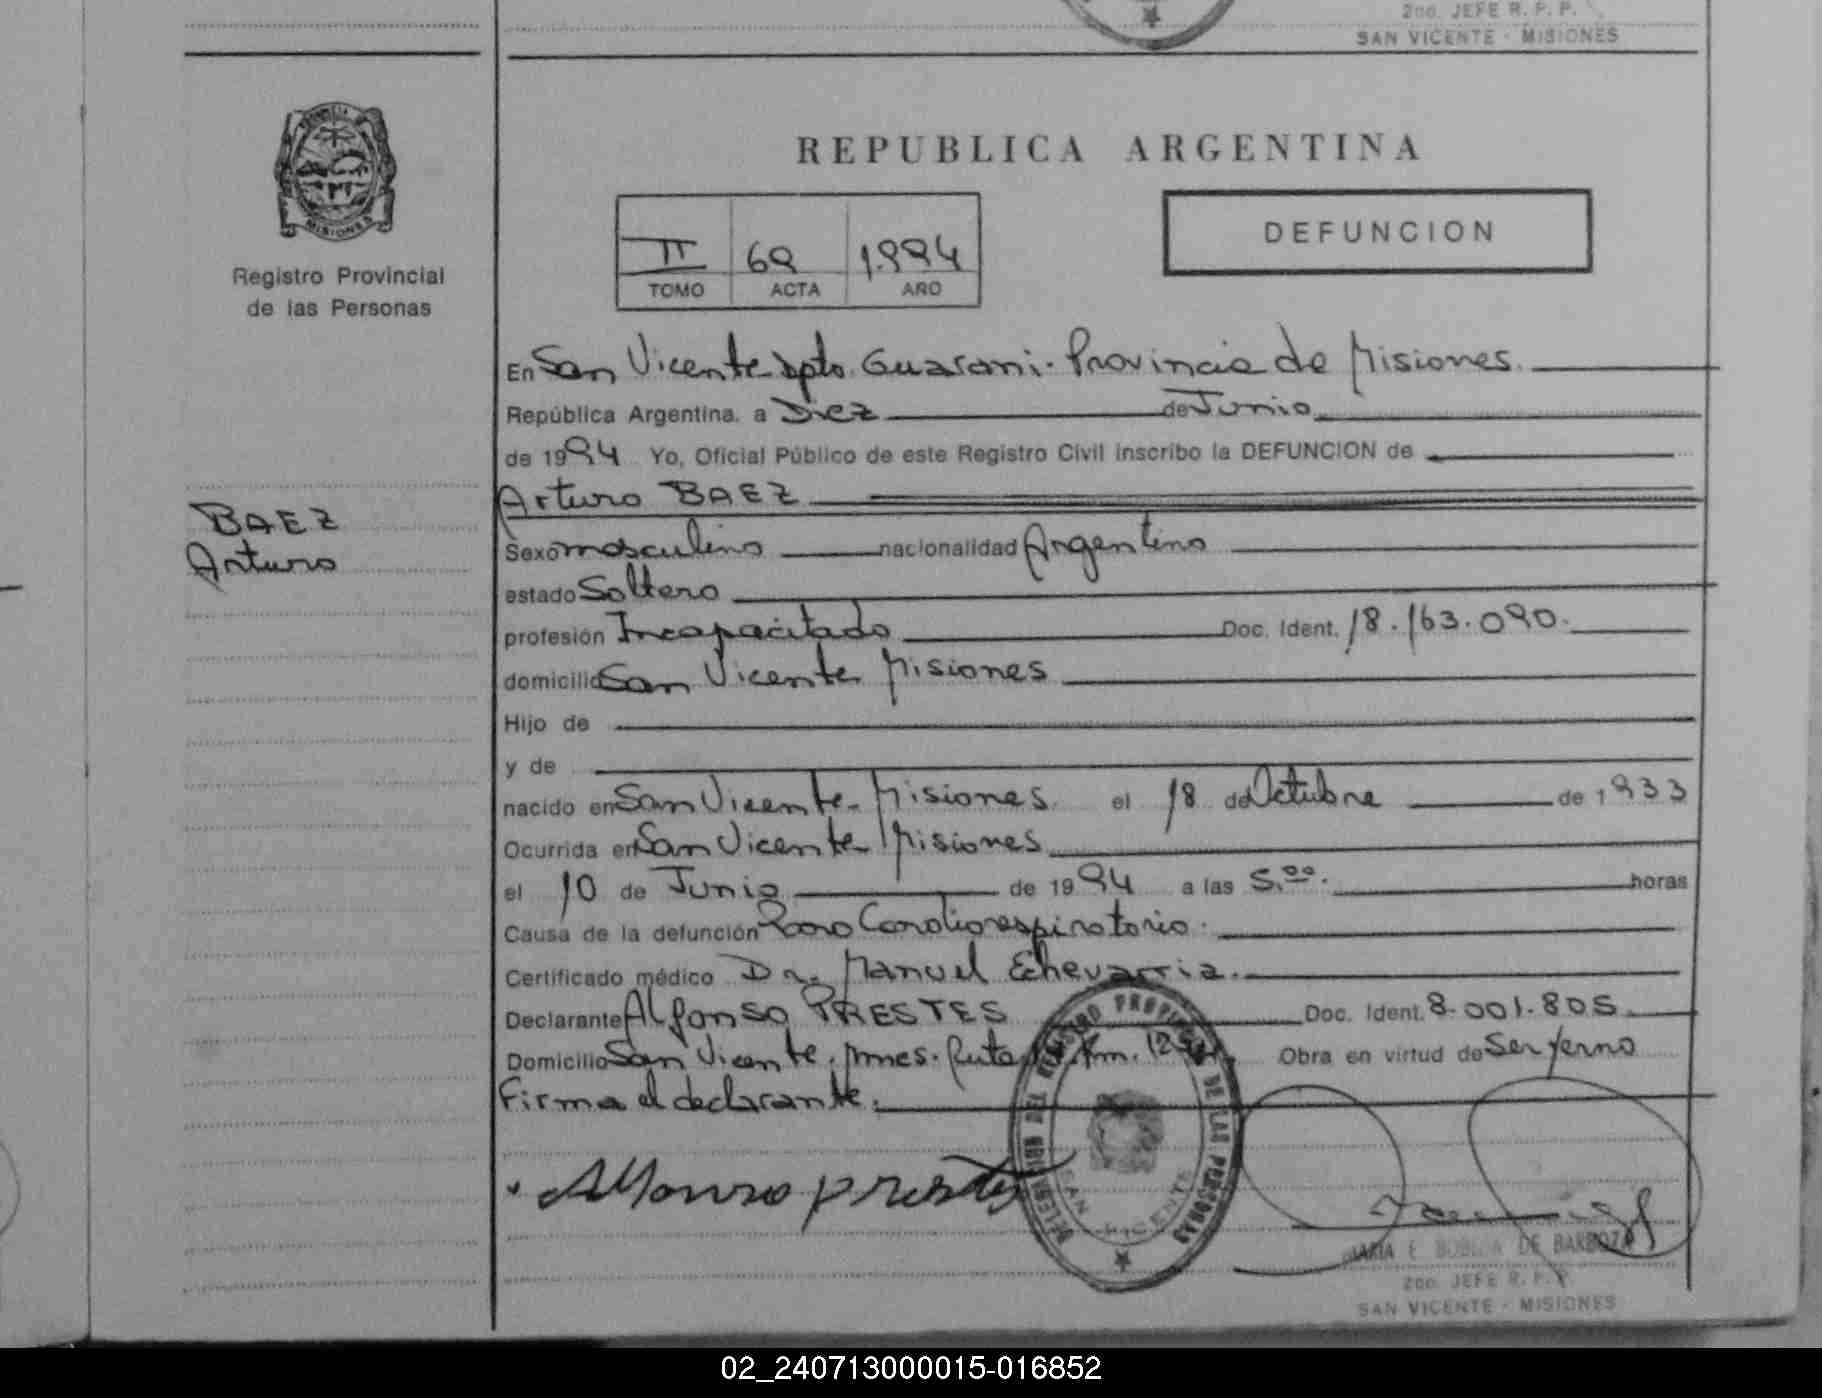 2do. JEFE R. P. P.
SAN VICENTE - MISIONES
PROVINCIA DE
MISIONES
Registro Provincial
de las Personas
REPUBLICA ARGENTINA
II 69 1.994
TOMO ACTA AÑO
DEFUNCION
En San Vicente Dpto. Guarani. Provincia de Misiones.
República Argentina, a Diez de Junio
de 1994 Yo, Oficial Público de este Registro Civil inscribo la DEFUNCION de
Arturo BAEZ
BAEZ
Arturo
Sexo masculino nacionalidad Argentino
estado Soltero
profesión Incapacitado Doc. Ident. 18.163.090.
domicilio San Vicente Misiones
Hijo de
y de
nacido en San Vicente. Misiones. el 18 de Octubre de 1933
Ocurrida en San Vicente Misiones
el 10 de Junio de 1994 a las 5.00. horas
Causa de la defunción Paro Cardiorespiratorio.
Certificado médico Dr. Manuel Echevarria.
Declarante Alfonso PRESTES Doc. Ident. 8.001.805.
Domicilio San Vicente. Mnes. Ruta Km. Obra en virtud de Ser yerno
Firma el declarante.
Alfonso prestes
DELEGACION DEL REGISTRO PROVINCIAL DE LAS PERSONAS
SAN VICENTE
MARIA E. DE BARBOZA
2do. JEFE R. P. P.
SAN VICENTE - MISIONES
02_240713000015-016852